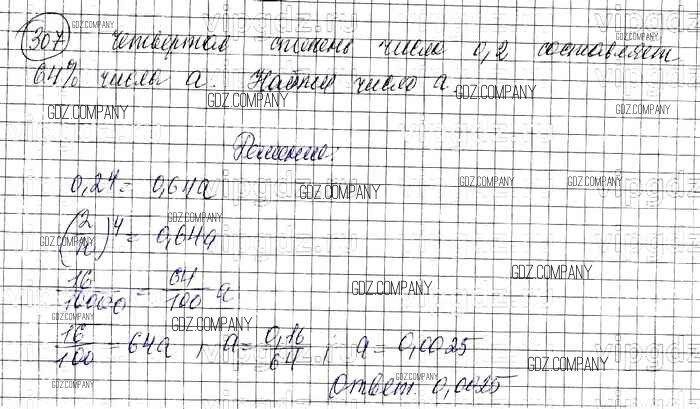 307 Четвертая степень числа 0,2 составляет
64% числа а. Найти число а.
Решение:
0,2⁴ = 0,64а
(2/10)⁴ = 0,64а
16/10000 = 64/100 а
16/100 = 64а ; а = 0,16/64 ; а = 0,0025
Ответ: 0,0025
GDZ.COMPANY
vipgdz.ru